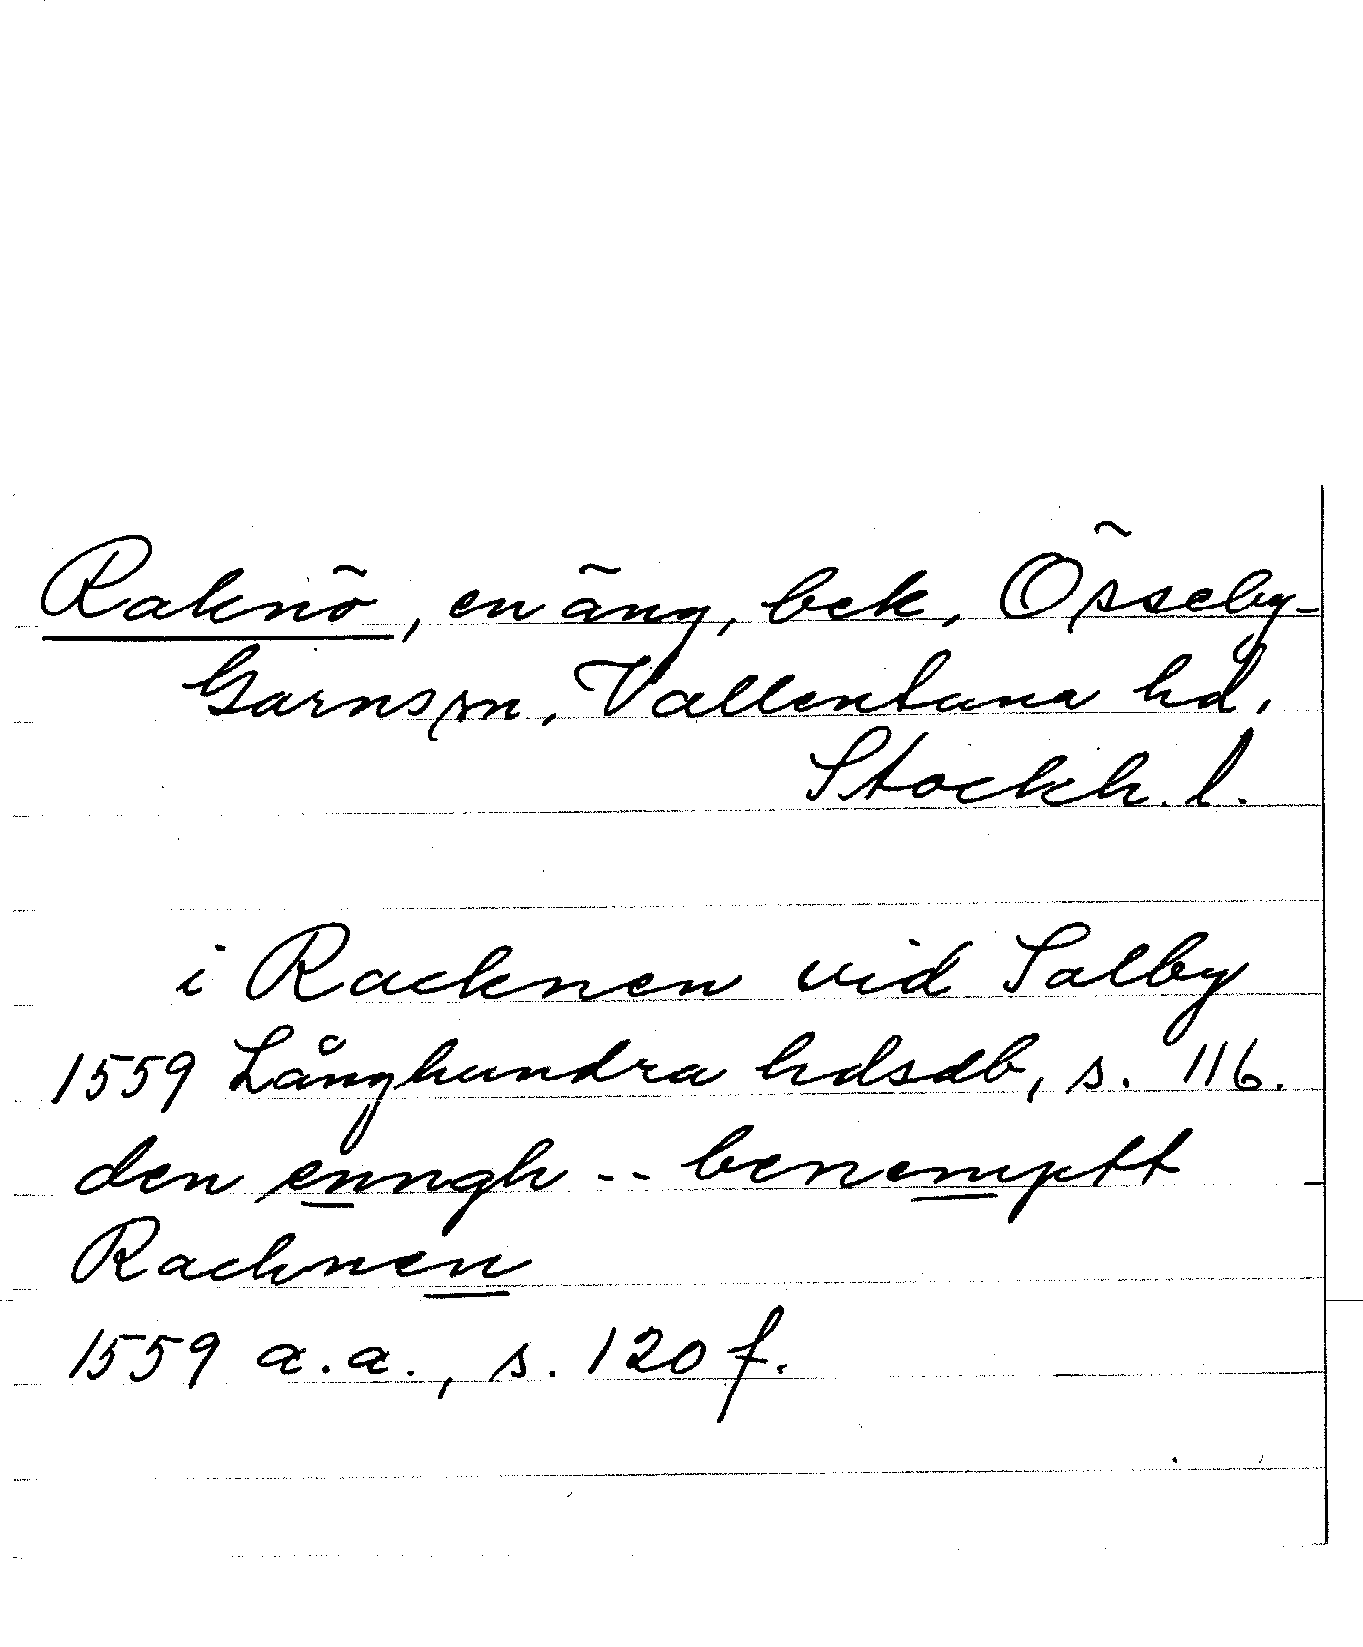 Raknö, en äng, bek, Össeby-
Garns sn, Vallentuna hd,
Stockh. l.
i Racknen vid Salby
1559 Långhundra hdsdb, s. 116.
den enngh -- benemptt
Racknen
1559 a.a., s. 120 f.